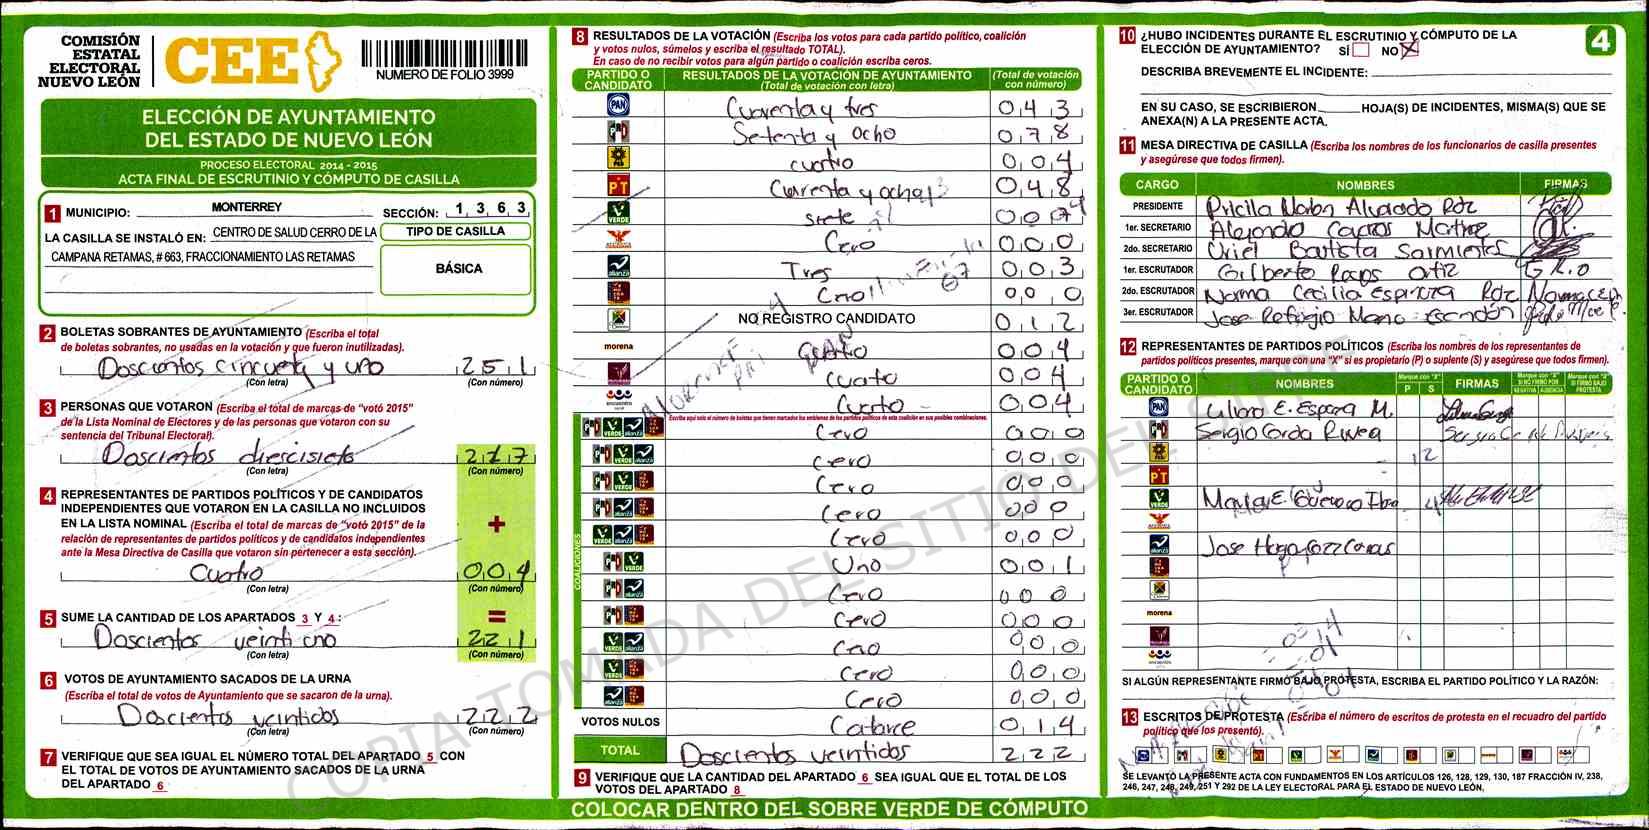 COMISIÓN
ESTATAL
ELECTORAL
NUEVO LEÓN
CEE
NUMERO DE FOLIO 3999
ELECCIÓN DE AYUNTAMIENTO
DEL ESTADO DE NUEVO LEÓN
PROCESO ELECTORAL 2014 - 2015
ACTA FINAL DE ESCRUTINIO Y CÓMPUTO DE CASILLA
1 MUNICIPIO: MONTERREY SECCIÓN: 1 3 6 3
LA CASILLA SE INSTALÓ EN: CENTRO DE SALUD CERRO DE LA
CAMPANA RETAMAS, # 663, FRACCIONAMIENTO LAS RETAMAS
TIPO DE CASILLA
BÁSICA
2 BOLETAS SOBRANTES DE AYUNTAMIENTO (Escriba el total
de boletas sobrantes, no usadas en la votación y que fueron inutilizadas).
Doscientos cincuenta y uno 2 5 1
(Con letra) (Con número)
3 PERSONAS QUE VOTARON (Escriba el total de marcas de "votó 2015"
de la Lista Nominal de Electores y de las personas que votaron con su
sentencia del Tribunal Electoral).
Doscientos diescisiete 2 1 7
(Con letra) (Con número)
4 REPRESENTANTES DE PARTIDOS POLÍTICOS Y DE CANDIDATOS
INDEPENDIENTES QUE VOTARON EN LA CASILLA NO INCLUIDOS
EN LA LISTA NOMINAL (Escriba el total de marcas de "votó 2015" de la
relación de representantes de partidos políticos y de candidatos independientes
ante la Mesa Directiva de Casilla que votaron sin pertenecer a esta sección).
+
Cuatro 0 0 4
(Con letra) (Con número)
5 SUME LA CANTIDAD DE LOS APARTADOS 3 Y 4 : =
Doscientos veinti uno 2 2 1
(Con letra) (Con número)
6 VOTOS DE AYUNTAMIENTO SACADOS DE LA URNA
(Escriba el total de votos de Ayuntamiento que se sacaron de la urna).
Doscientos veintidos 2 2 2
(Con letra) (Con número)
7 VERIFIQUE QUE SEA IGUAL EL NÚMERO TOTAL DEL APARTADO 5 CON
EL TOTAL DE VOTOS DE AYUNTAMIENTO SACADOS DE LA URNA
DEL APARTADO 6
8 RESULTADOS DE LA VOTACIÓN (Escriba los votos para cada partido político, coalición
y votos nulos, súmelos y escriba el resultado TOTAL).
En caso de no recibir votos para algún partido o coalición escriba ceros.
PARTIDO O CANDIDATO
RESULTADOS DE LA VOTACIÓN DE AYUNTAMIENTO
(Total de votación con letra)
(Total de votación con número)
PAN Cuarenta y tres 0 4 3
Setenta y ocho 0 7 8
cuatro 0 0 4
PT Cuarenta y ocho 0 4 8
VERDE siete 0 0 7
Cero 0 0 0
alianza Tres 0 0 3
Cero 0 0 0
NO REGISTRO CANDIDATO 0 1 2
morena cuatro 0 0 4
cuatro 0 0 4
encuentro social Cuatro 0 0 4
COALICIONES
Escriba aquí solo el número de boletas que tienen marcados los emblemas de los partidos políticos de esta coalición en sus posibles combinaciones.
Cero 0 0 0
cero 0 0 0
Cero 0 0 0
Cero 0 0 0
Cero 0 0 0
Uno 0 0 1
Cero 0 0 0
Cero 0 0 0
Cero 0 0 0
Cero 0 0 0
Cero 0 0 0
VOTOS NULOS Catorce 0 1 4
TOTAL Doscientos veintidos 2 2 2
9 VERIFIQUE QUE LA CANTIDAD DEL APARTADO 6 SEA IGUAL QUE EL TOTAL DE LOS
VOTOS DEL APARTADO 8
COLOCAR DENTRO DEL SOBRE VERDE DE CÓMPUTO
10 ¿HUBO INCIDENTES DURANTE EL ESCRUTINIO Y CÓMPUTO DE LA
ELECCIÓN DE AYUNTAMIENTO? SÍ NO X
4
DESCRIBA BREVEMENTE EL INCIDENTE:
EN SU CASO, SE ESCRIBIERON HOJA(S) DE INCIDENTES, MISMA(S) QUE SE
ANEXA(N) A LA PRESENTE ACTA.
11 MESA DIRECTIVA DE CASILLA (Escriba los nombres de los funcionarios de casilla presentes
y asegúrese que todos firmen).
CARGO NOMBRES FIRMAS
PRESIDENTE Alvarado Rdz
1er. SECRETARIO Alejandro
2do. SECRETARIO Uriel Bautista Sarmiento
1er. ESCRUTADOR Gilberto Ortiz G R O
2do. ESCRUTADOR Norma Cecilia Espinoza Rdz Norma C E
3er. ESCRUTADOR Jose Refugio
12 REPRESENTANTES DE PARTIDOS POLÍTICOS (Escriba los nombres de los representantes de
partidos políticos presentes, marque con una "X" si es propietario (P) o suplente (S) y asegúrese que todos firmen).
PARTIDO O CANDIDATO
NOMBRES
Marque con "X"
P S
FIRMAS
Marque con "X" SI NO FIRMÓ POR
NEGATIVA AUSENCIA
Marque con "X" SI FIRMÓ BAJO PROTESTA
PAN E. Esparza M.
Sergio
VERDE
alianza Jose
morena
encuentro social
SI ALGÚN REPRESENTANTE FIRMÓ BAJO PROTESTA, ESCRIBA EL PARTIDO POLÍTICO Y LA RAZÓN:
13 ESCRITOS DE PROTESTA (Escriba el número de escritos de protesta en el recuadro del partido
político que los presentó).
SE LEVANTÓ LA PRESENTE ACTA CON FUNDAMENTOS EN LOS ARTÍCULOS 126, 128, 129, 130, 187 FRACCIÓN IV, 238,
246, 247, 248, 249, 251 Y 292 DE LA LEY ELECTORAL PARA EL ESTADO DE NUEVO LEÓN.
COPIA TOMADA DEL SITIO DEL SIPRE